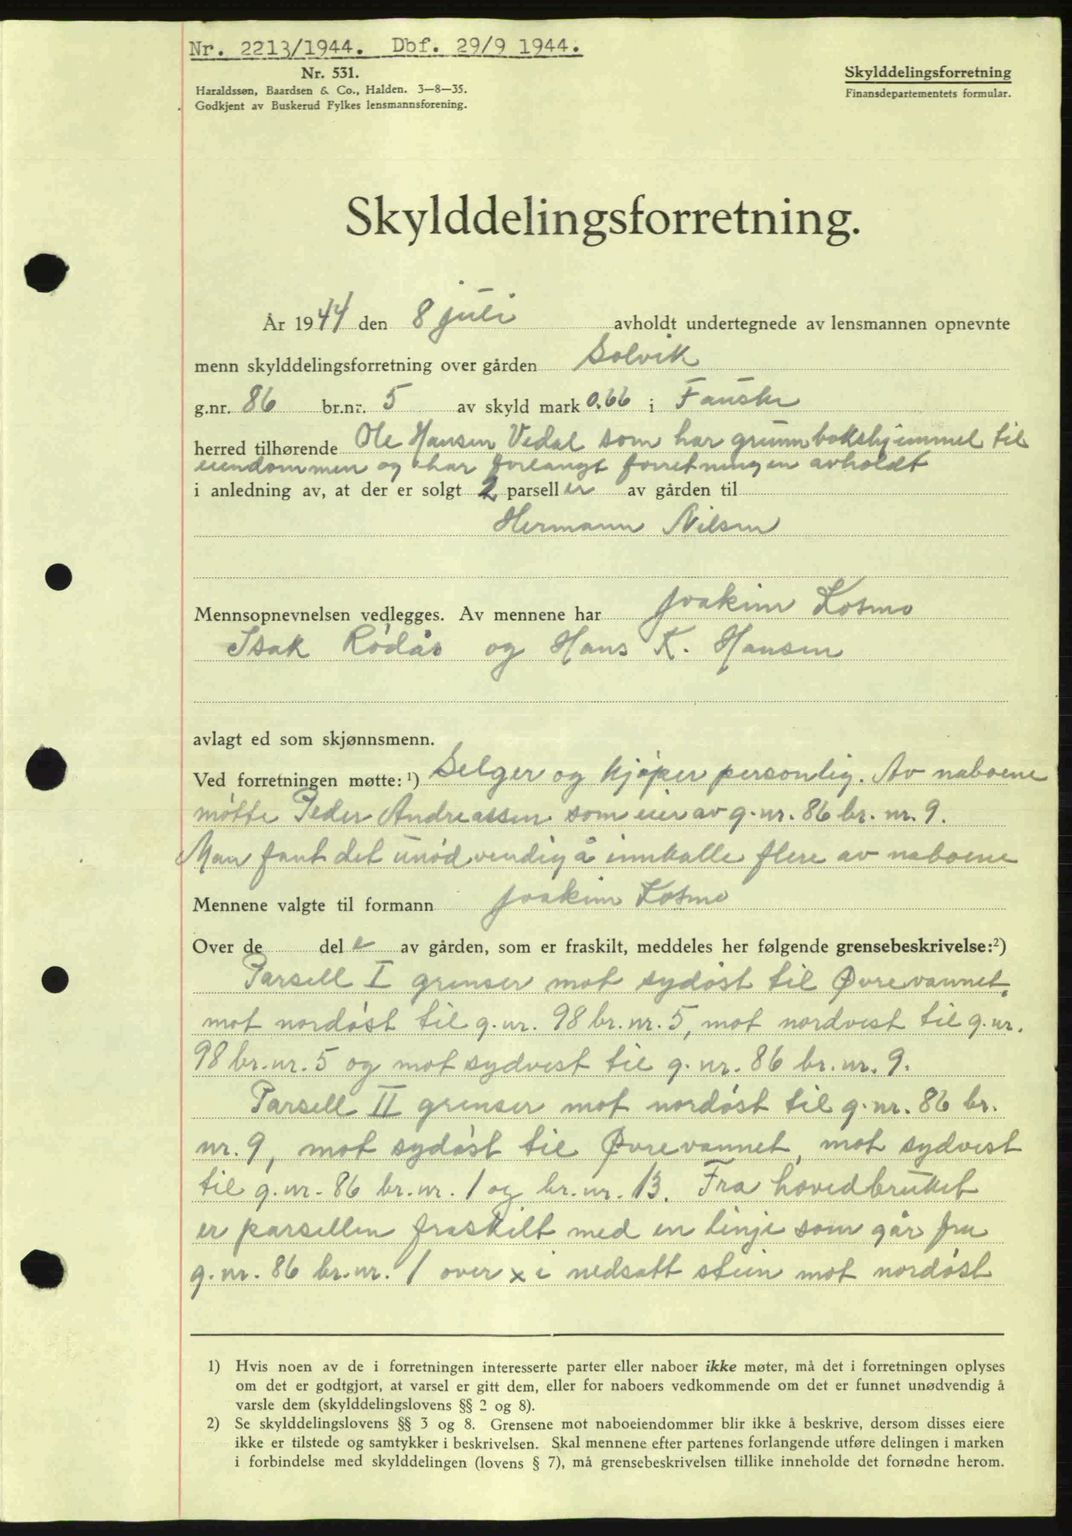 Nr. 2213/1944. Dbf. 29/9 1944.
Nr. 531.
Haraldssøn, Baardsen & Co., Halden. 3—8—35.
Godkjent av Buskerud Fylkes lensmannsforening.
Skylddelingsforretning
Finansdepartementets formular.
Skylddelingsforretning.
År 1944 den 8 juli avholdt undertegnede av lensmannen opnevnte
menn skylddelingsforretning over gården Solvik
g.nr. 86 br.nr. 5 av skyld mark 0.66 i Fauske
herred tilhørende Ole Hansen Vedal som har grunnbokshjemmel til
eiendommen og har forlangt forretningen avholdt
i anledning av, at der er solgt 2 parseller av gården til
Hermann Nilsen
Mennsopnevnelsen vedlegges. Av mennene har Joakim Kosmo
Isak Rødås og Hans K. Hansen
avlagt ed som skjønnsmenn.
Ved forretningen møtte: 1) Selger og kjøper personlig. Av naboene
møtte Peder Andreassen som eier av g.nr. 86 br. nr. 9.
Man fant det unødvendig å innkalle flere av naboene
Mennene valgte til formann Joakim Kosmo
Over de del e av gården, som er fraskilt, meddeles her følgende grensebeskrivelse: 2)
Parsell I grenser mot sydøst til Øvrevannet,
mot nordøst til g.nr. 98 br.nr. 5, mot nordvest til g.nr.
98 br.nr. 5 og mot sydvest til g.nr. 86 br.nr. 9.
Parsell II grenser mot nordøst til g.nr. 86 br.
nr. 9, mot sydøst til Øvrevannet, mot sydvest
til g.nr. 86 br.nr. 1 og br.nr. 13. Fra hovedbruket
er parsellen fraskilt med en linje som går fra
g.nr. 86 br.nr. 1 over x i nedsatt stein mot nordøst
1) Hvis noen av de i forretningen interesserte parter eller naboer ikke møter, må det i forretningen oplyses
om det er godtgjort, at varsel er gitt dem, eller for naboers vedkommende om det er funnet unødvendig å
varsle dem (skylddelingslovens §§ 2 og 8).
2) Se skylddelingslovens §§ 3 og 8. Grensene mot naboeiendommer blir ikke å beskrive, dersom disses eiere
ikke er tilstede og samtykker i beskrivelsen. Skal mennene efter partenes forlangende utføre delingen i marken
i forbindelse med skylddelingen (lovens § 7), må grensebeskrivelsen tillike inneholde det fornødne herom.